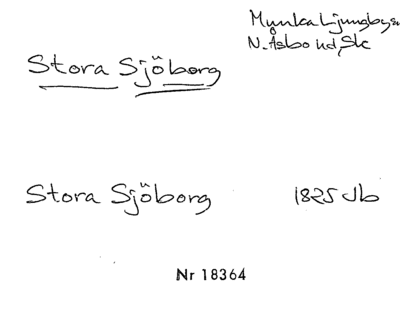 Munka Ljungby sn
N. Åsbo hd, Sk
Stora Sjöborg
Stora Sjöborg 1825 Jb
Nr 18364